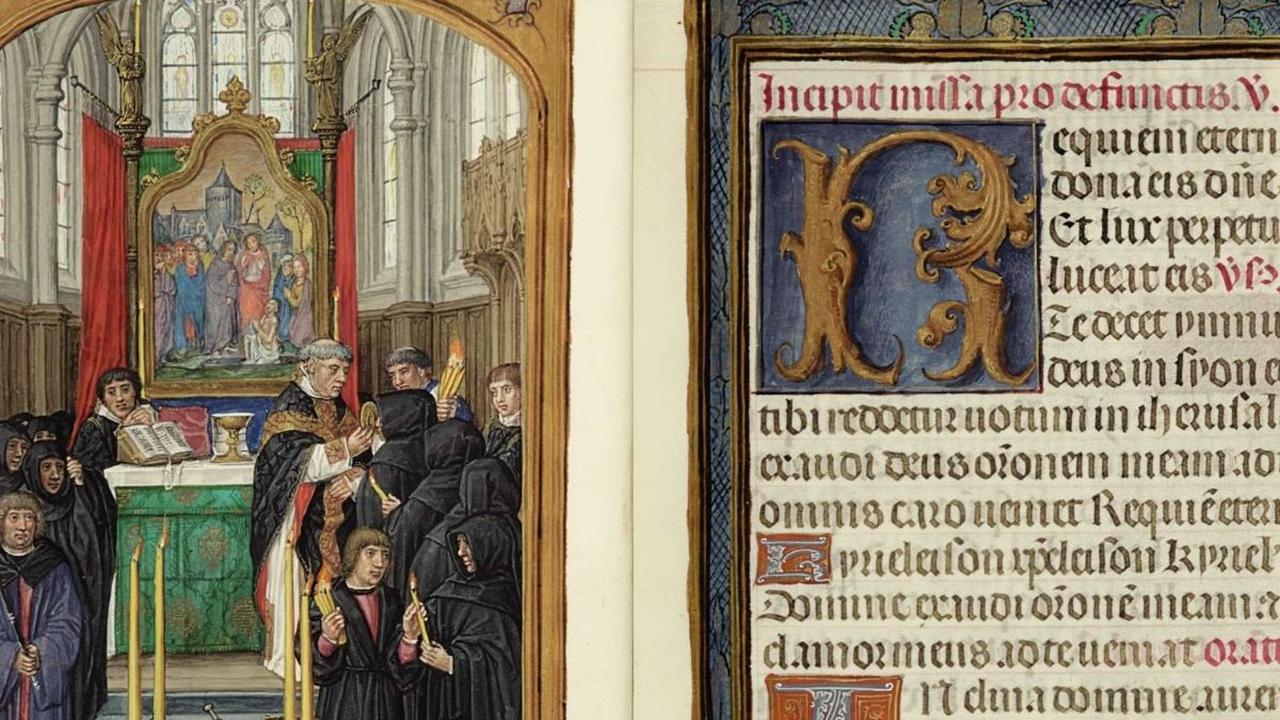 Incipit missa pro defunctis. V̄.
Requiem etern
dona eis dn̄e
Et lux perpetu
luceat eis v̄s
Te decet ymnu
deus in syon e
tibi reddetur uotum in iherusal
exaudi deus or̄onem meam ad
omnis caro ueniet Requiē eter
Kyrieleison xp̄eleison Kyriel
Domine exaudi or̄onē meam
clamor meus ad te ueniat orati
Inclina domine aurem